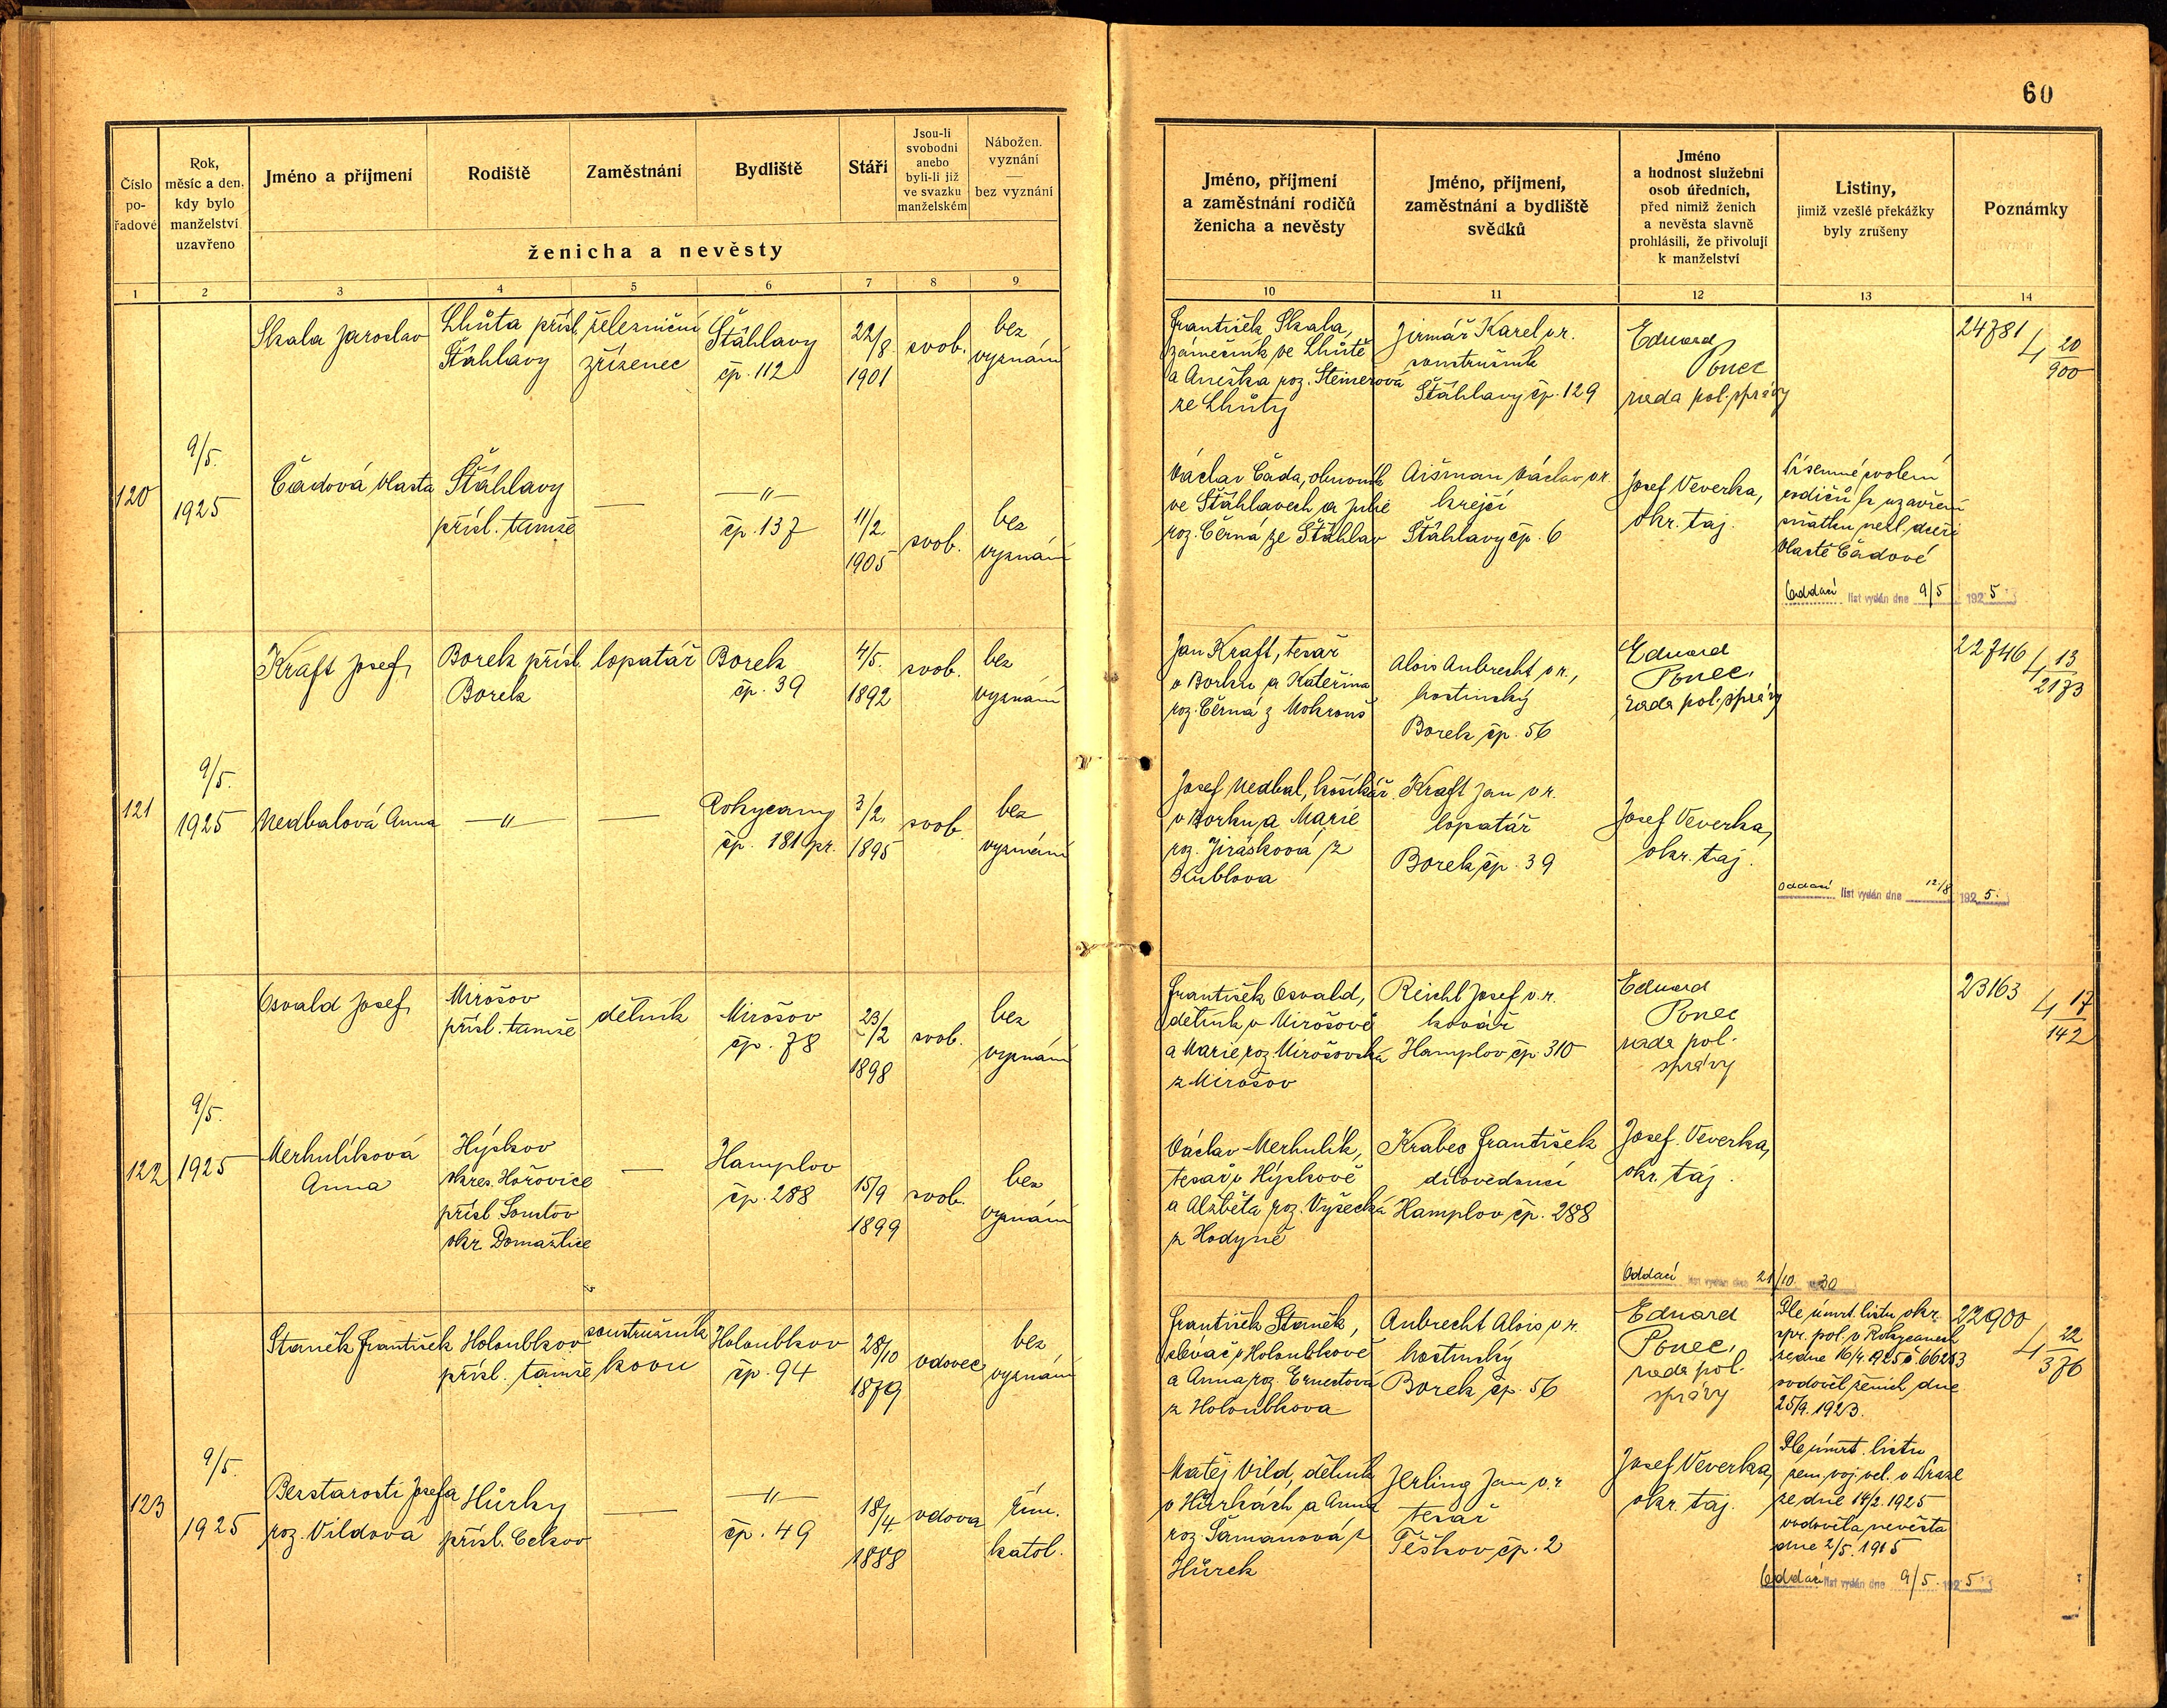 60
Číslo pořadové
Rok, měsíc a den, kdy bylo manželství uzavřeno
Jméno a příjmení
Rodiště
Zaměstnání
Bydliště
Stáří
Jsou-li svobodni anebo byli-li již ve svazku manželském
Nábožen. vyznání — bez vyznání
ženicha a nevěsty
1 2 3 4 5 6 7 8 9
Jméno, příjmení a zaměstnání rodičů ženicha a nevěsty
Jméno, příjmení, zaměstnání a bydliště svědků
Jméno a hodnost služební osob úředních, před nimiž ženich a nevěsta slavně prohlásili, že přivolují k manželství
Listiny, jimiž vzešlé překážky byly zrušeny
Poznámky
10 11 12 13 14
120
9/5.
1925
Skala Jaroslav
Lhůta přísl.
Šťáhlavy
železniční
zřízenec
Šťáhlavy
čp. 112
22/8.
1901
svob.
bez
vyznání
František Skala,
zámečník ve Lhůtě
a Anežka roz. Steinerová
ze Lhůty
Jirmář Karel v.r.
soustružník
Šťáhlavy čp. 129
Eduard
Ponec
rada pol. správy
24781
4 20/900
Čadová Vlasta
Šťáhlavy
přísl. tamže
—
—"—
čp. 137
11/2.
1905
svob.
bez
vyznání
Václav Čada, obuvník
ve Šťáhlavech a Julie
roz. Černá ze Šťáhlav
Aišman Václav v.r.
krejčí
Šťáhlavy čp. 6
Josef Veverka,
okr. taj.
Písemné svolení
rodičů k uzavření
sňatku nezl. dceři
Vlastě Čadové
Oddací list vydán dne 9/5 1925.
121
9/5.
1925
Kraft Josef,
Borek přísl.
Borek
lopatář
Borek
čp. 39
4/5.
1892
svob.
bez
vyznání
Jan Kraft, tesař
v Borku a Kateřina
roz. Černá z Mokrouš
Alois Aubrecht v.r.,
hostinský
Borek čp. 56
Eduard
Ponec,
rada pol. správy
22746
4 13/2173
Nedbalová Anna
—"—
—
Rokycany
čp. 181 pr.
3/2.
1895
svob.
bez
vyznání
Josef Nedbal, košíkář
v Borku a Marie
roz. Jirásková z
Kublova
Kraft Jan v.r.
lopatář
Borek čp. 39
Josef Veverka,
okr. taj.
Oddací list vydán dne 12/8 1925.
122
9/5.
1925
Osvald Josef,
Mirošov
přísl. tamže
dělník
Mirošov
čp. 78
23/2
1898
svob.
bez
vyznání
František Osvald,
dělník v Mirošově
a Marie roz. Mirošovská
z Mirošov
Reichl Josef v.r.
kovář
Hamplov čp. 310
Eduard
Ponec
rada pol.
správy
23163
4 17/142
Merhulíková
Anna
Hýskov
okres Hořovice
přísl.
okr. Domažlice
—
Hamplov
čp. 288
15/9
1899
svob.
bez
vyznání
Václav Merhulík,
tesař v Hýskově
a Alžběta roz. Vyšecká
z Hodyně
Krabec František
dílovedoucí
Hamplov čp. 288
Josef Veverka,
okr. taj.
Oddací list vydán dne 21/10 30
123
9/5.
1925
Staněk František
Holoubkov
přísl. tamže
soustružník
kovu
Holoubkov
čp. 94
28/10
1879
vdovec
bez
vyznání
František Staněk,
slévač v Holoubkově
a Anna roz. Ernestová
z Holoubkova
Aubrecht Alois v.r.
hostinský
Borek čp. 56
Eduard
Ponec,
rada pol.
správy
Dle úmrt. listu okr.
spr. pol. v Rokycanech
ze dne 16/4. 1925 č.
ovdověl ženich dne
25/9. 1923.
22900
4 22/376
Bezstarosti Josefa
roz. Vildová
Hůrky
přísl. Cekov
—
—"—
čp. 49
18/4.
1888
vdova
řím.
katol.
Matěj Vild, dělník
v Hůrkách a Anna
roz. Šamanová z
Hůrek
Jerling Jan v.r.
tesař
Těškov čp. 2
Josef Veverka,
okr. taj.
Dle úmrt. listu
zem. voj. vel. v Praze
ze dne 14/2. 1925
ovdověla nevěsta
dne 2/5. 1915
Oddací list vydán dne 9/5 1925